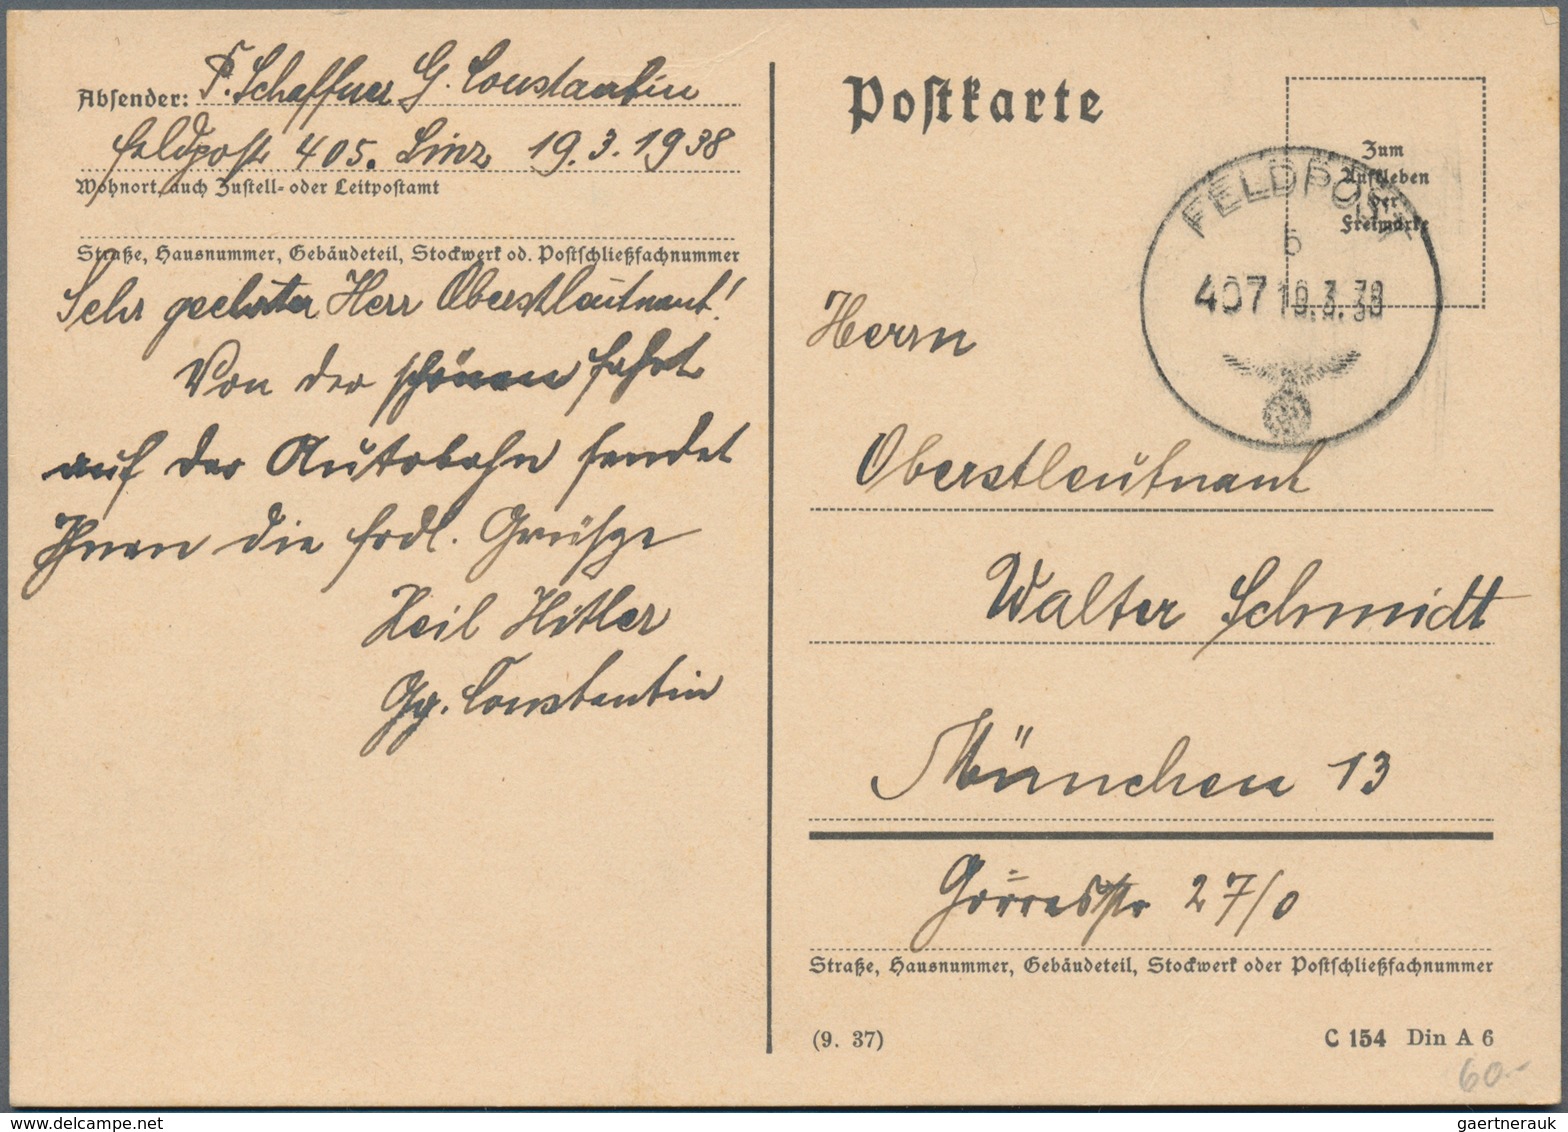 Absender: P. Schaffner G. Constantin
Feldpost 405. Linz 19.3.1938
Wohnort, auch Zustell- oder Leitpostamt
Straße, Hausnummer, Gebäudeteil, Stockwerk od. Postschließfachnummer
Sehr geehrter Herr Oberstleutnant!
Von der schönen Fahrt
auf der Autobahn sendet
Ihnen die frdl. Grüsze
Heil Hitler
Gg. Constantin
Postkarte
Zum
Aufkleben
der
Freimarke
FELDPOST
b
407 19.3.38
Herrn
Oberstleutnant
Walter Schmidt
München 13
Görresstr 27/0
Straße, Hausnummer, Gebäudeteil, Stockwerk oder Postschließfachnummer
(9. 37)
C 154 Din A 6
60.-
gaertnerauk